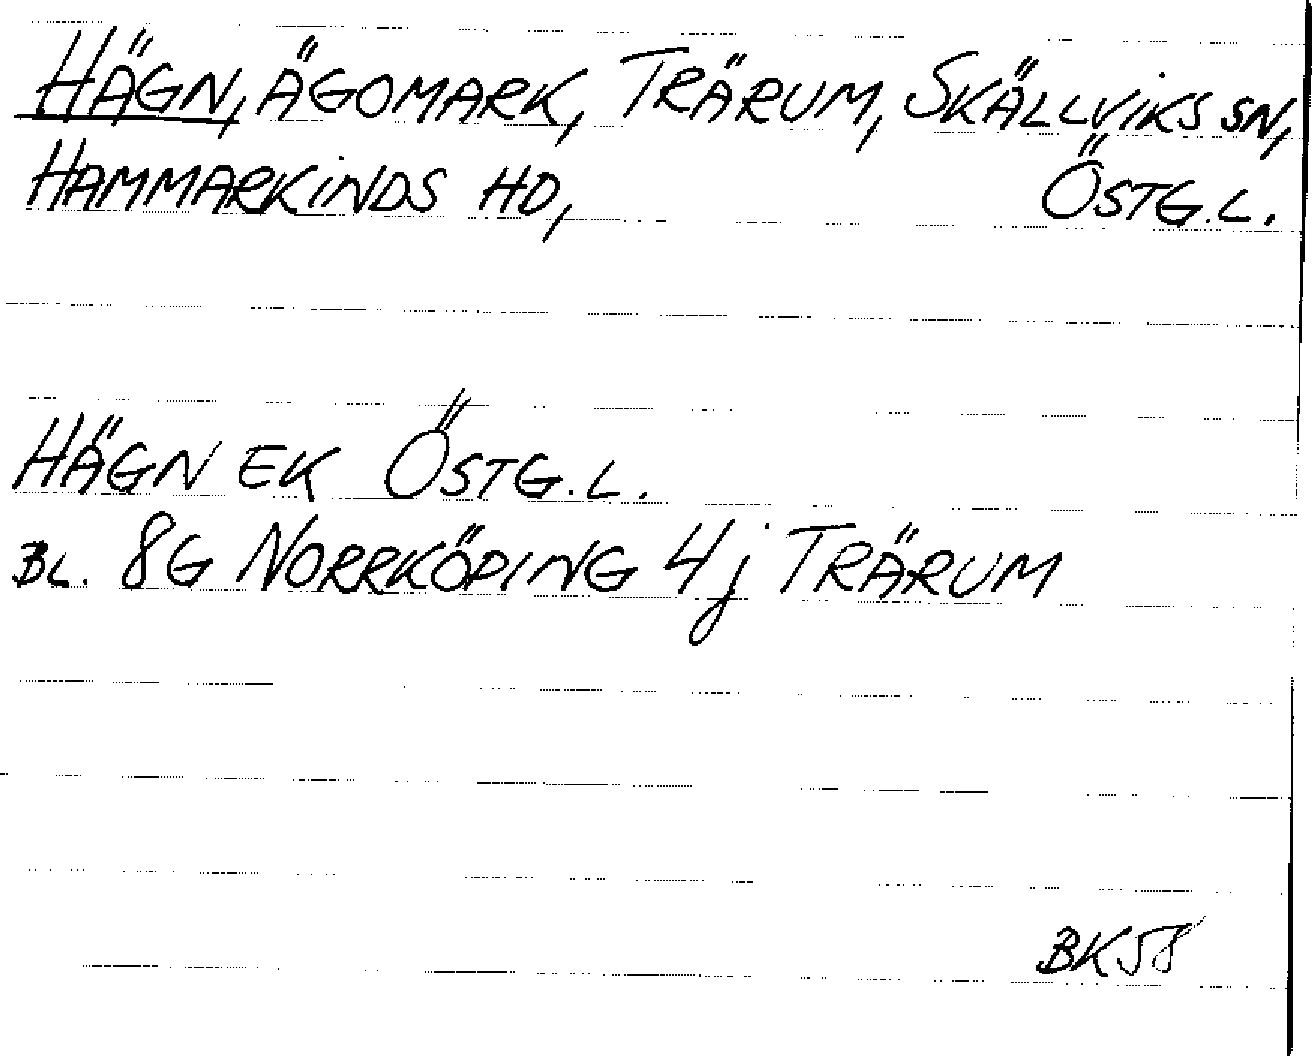 HÄGN, ÄGOMARK, TRÄRUM, SKÄLLVIKS SN,
HAMMARKINDS HD, ÖSTG.L.
HÄGN EK ÖSTG.L.
BL. 8G NORRKÖPING 4j TRÄRUM
BK58